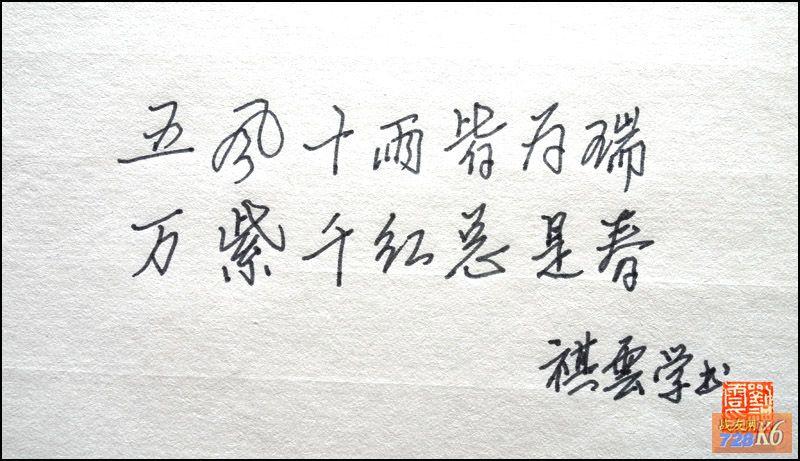 五风十雨皆为瑞
万紫千红总是春
祺雲学书
728 K6